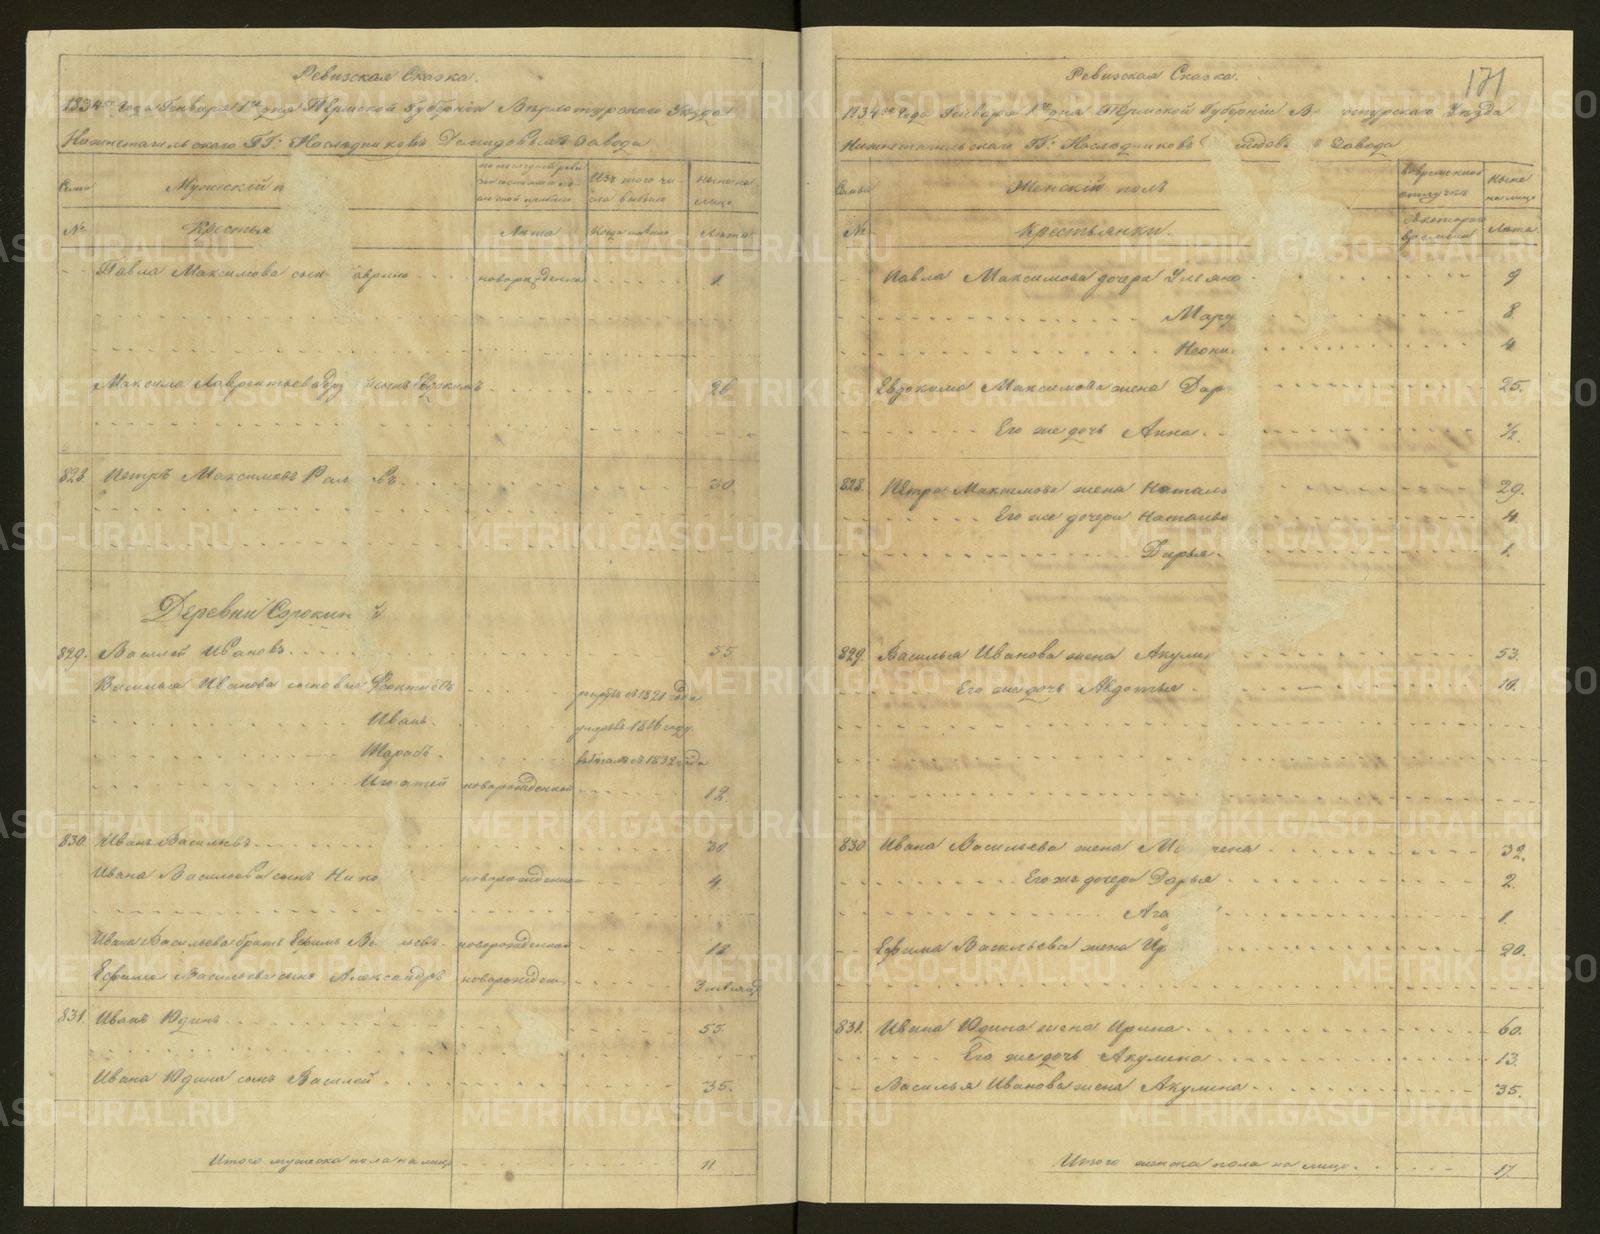 Ревизская Сказка.
1834го Года Генваря 1го дня Пермской Губернии Верхотурского Уезда
Нижнетагильского ГГ: Наследниковъ Демидовыхъ Завода
Семьи
Мужескiй п
Изъ того числа выбыло
Ныне на лицо
№
Крестья
Лета
Когда именно
Лета
Павла Максимова сын аврило новорожденна 1.
Максима Лаврентьева другой сынъ Евдокимъ 26
828. Петръ Максимовъ Рал въ 30.
Деревни Сорокин й
829. Василей Ивановъ 55
Василья Иванова сыновья Феоктистъ рекрутъ съ 1821 года
Иванъ умревъ 1816 году.
въ 1832 года
Игнатей новорожденной 12.
830. Иванъ Васильевъ 30.
Ивана Васильева сынъ Нико новорожденной 4.
Ивана Васильева братъ Ефимъ Ва сильевъ новорожденной 18
Ефима Васильева сынъ Александръ новорожден 3 месяца
831. Иванъ Юдинъ 55.
Ивана Юдина сынъ Василей 35.
Итого мужеска пола на лицо 11
171
Ревизская Сказка.
1834го Года Генваря 1го дня Пермской Губернии В отурского Уезда
Нижнетагильского ГГ: Наследниковъ мидов Завода
Семьи
Женскiй полъ
Во временной отлучке
Ныне на лицо
№
Крестьянки.
Лета
Павла Максимова дочери Ульяна 9
Мару 8
Неони 4
Евдокима Максимова жена Дар 25.
Его же дочь Анна. 1/2.
828. Петра Максимова жена Наталь 29.
Его же дочери Наталья 4.
Дарья 1.
829. Василья Иванова жена Акули 53.
Его же дочь Авдотья 10.
830 Ивана Васильева жена М 32.
Его же дочери Дарья 2.
Ага 1.
Ефима Васильева жена Ир 20.
831. Ивана Юдина жена Ирина 60.
Его же дочь Акулина 13.
Василья Иванова жена Акулина 35.
Итого женска пола на лицо 17.
METRIKI.GASO-URAL.RU